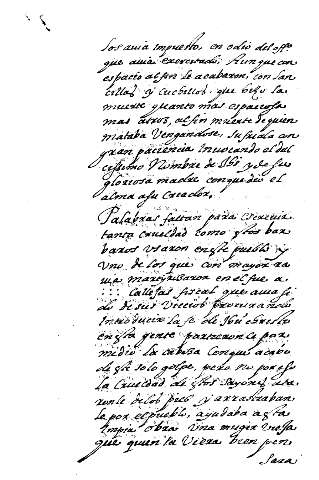 los avia impuesto, en odio del offo
que avia exercitado, Aunque con
espacio al fin le acabaron, con lan
cillas y cuchillos, que hizo la
muerte quanto mas espaciosa
mas atros, al fin muerte de quien
mataba Vengandose, Sufriala con
gran paciencia invocando el dul
cissimo Nombre de Jhs y de su
gloriosa madre con que dio el
alma a su Creador,
Palabras faltan para escrevir
tanta crueldad como estos bar
baros usaron en este pueblo y
uno de los que con mayor ra
via martirisaron en el fue a
fiscal que avia si
do de sus Vicios
introducir la fe de Jhu christo
en esta gente partieronle por
medio la cabeza con que acabo
de este solo golpe, pero no por eso
la Crueldad de estos Sayones, ata
ronle de los pies y arrastraban
le por el pueblo, ayudaba a esta
impia obra una muger
que quien la viera bien pen
sara